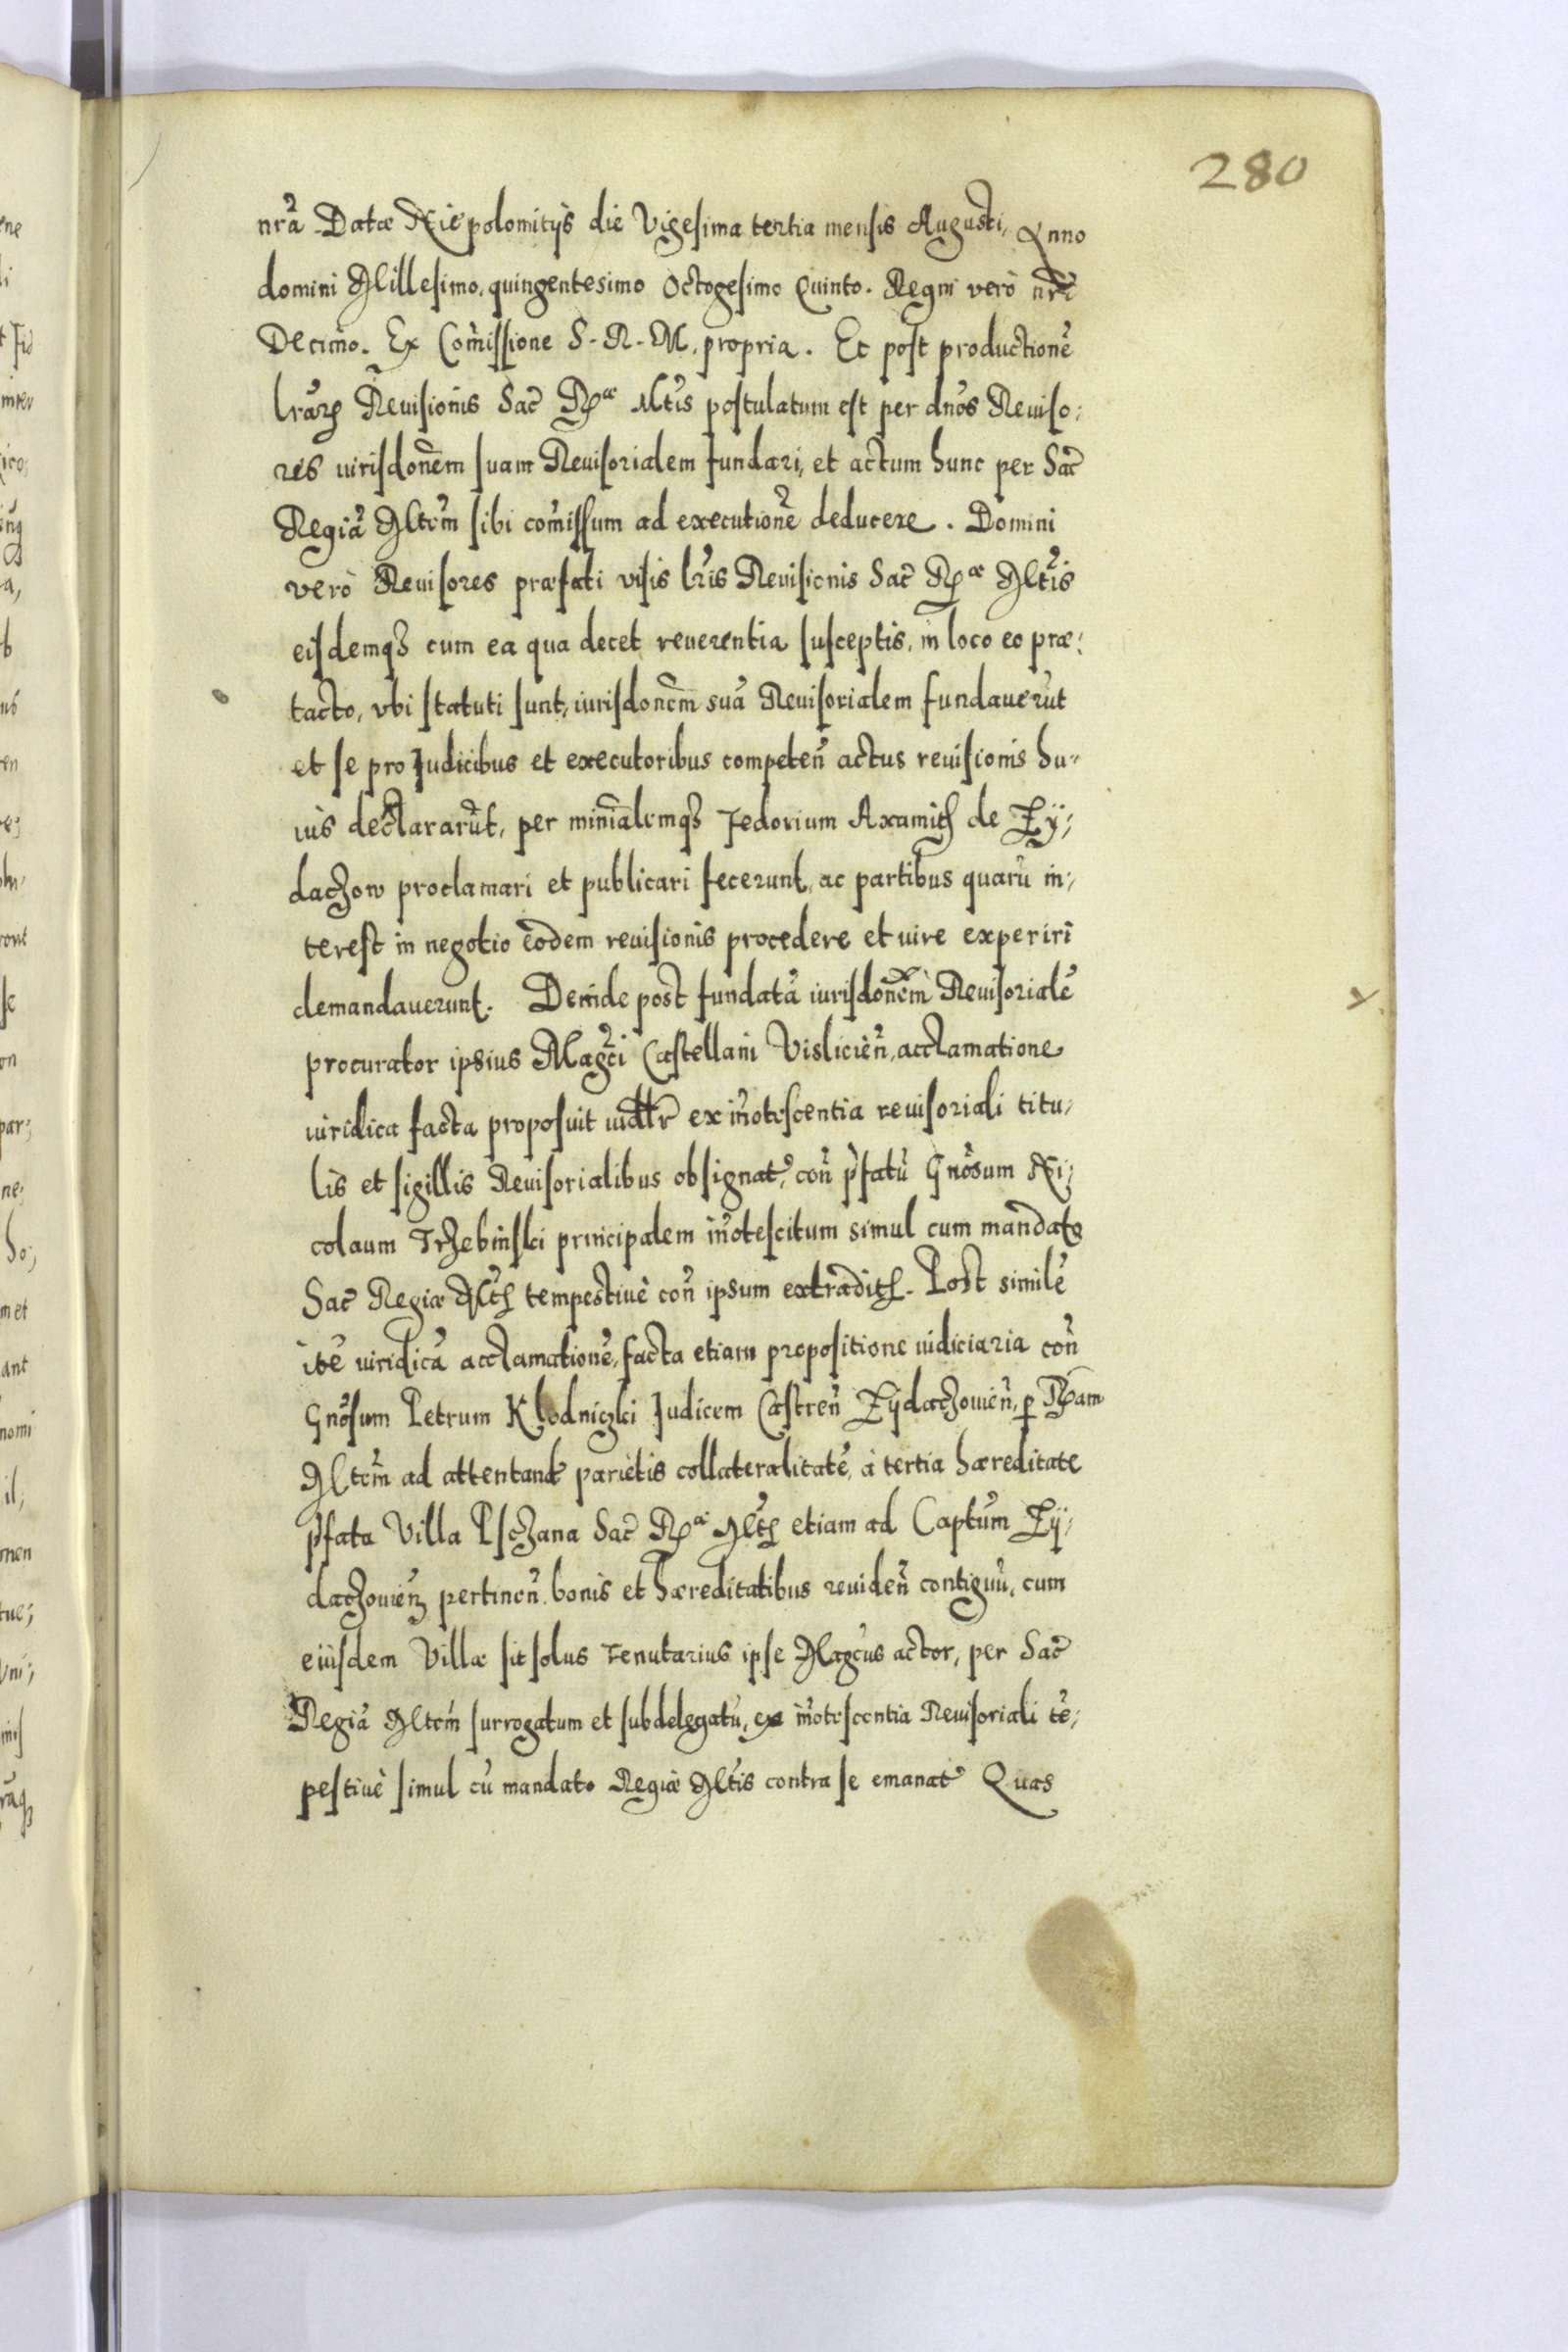 280
nrã Datæ Niepolomitÿs die Vigesima tertia mensis Augusti, Anno
domini Millesimo, quingentesimo Octogesimo Quinto. Regni verò nrĩ
Decimo. Ex Com̃issione S. R. M. propria. Et post productionẽ
lrarꝝ Reuisionis Sac̃ Rᵃᵉ Mtis̃ postulatum est per dnõs Reuiso:
res iurisdonẽm suam Reuisorialem fundari, et actum hunc per Sac̃
Regiã Mtẽm sibi com̃issum ad executionẽ deducere. Domini
verò Reuisores præfati visis lrĩs Reuisionis Sac̃ Rᵃᵉ Mtis̃
eisdemqꝫ cum ea qua decet reuerentia susceptis, in loco eo præ:
tacto, vbi statuti sunt, iurisdonẽm suã Reuisorialem fundauerũt
et se pro Judicibus et executoribus competeñ actus reuisionis hu"
ius declararũt, per minĩalemqꝫ Fedorium Axamith de Zÿ;
daczow proclamari et publicari fecerunt, ac partibus quarũ in;
terest in negotio eodem reuisionis procedere et iure experiri
demandauerunt. Deinde post fundatã iurisdonẽm Reuisorialẽ
procurator ipsius Magcĩ Castellani Visliciеñ, acclamatione
iuridica facta proposuit iudltr̃ ex iñotescentia reuisoriali titu;
lis et sigillis Reuisorialibus obsignat̃, coñ p̃fatũ Gnõsum Ni;
colaum Trzebinski principalem iñotescitum simul cum mandato
Sac̃ Regiæ Mt̃ꝭ tempestiuè coñ ipsum extraditꝭ. Post similẽ
itẽ iuridicã acclamationẽ, facta etiam propositione iudiciaria coñ
Gnõsum Petrum Klodniczki Judicem Castreñ Zÿdaczouieñ, ꝑ Rᵃᵐ
Mtẽm ad attentand̃ parietis collateralitatẽ, à tertia hæreditate
p̃fata Villa Psczana Sac̃ Rᵃᵉ Mt̃ꝭ etiam ad Captũm Zÿ;
daczouieñ pertineñ. bonis et hæreditatibus reuideñ contiguũ, cum
eiusdem Villæ sit solus Tenutarius ipse Magcũs actor, per Sac̃
Regiã Mtẽm surrogatum et subdelegatũ, ex iñotescentia Reuisoriali tẽ;
pestiuè simul cũ mandato Regiæ Mtis̃ contra se emanat̃ Quas